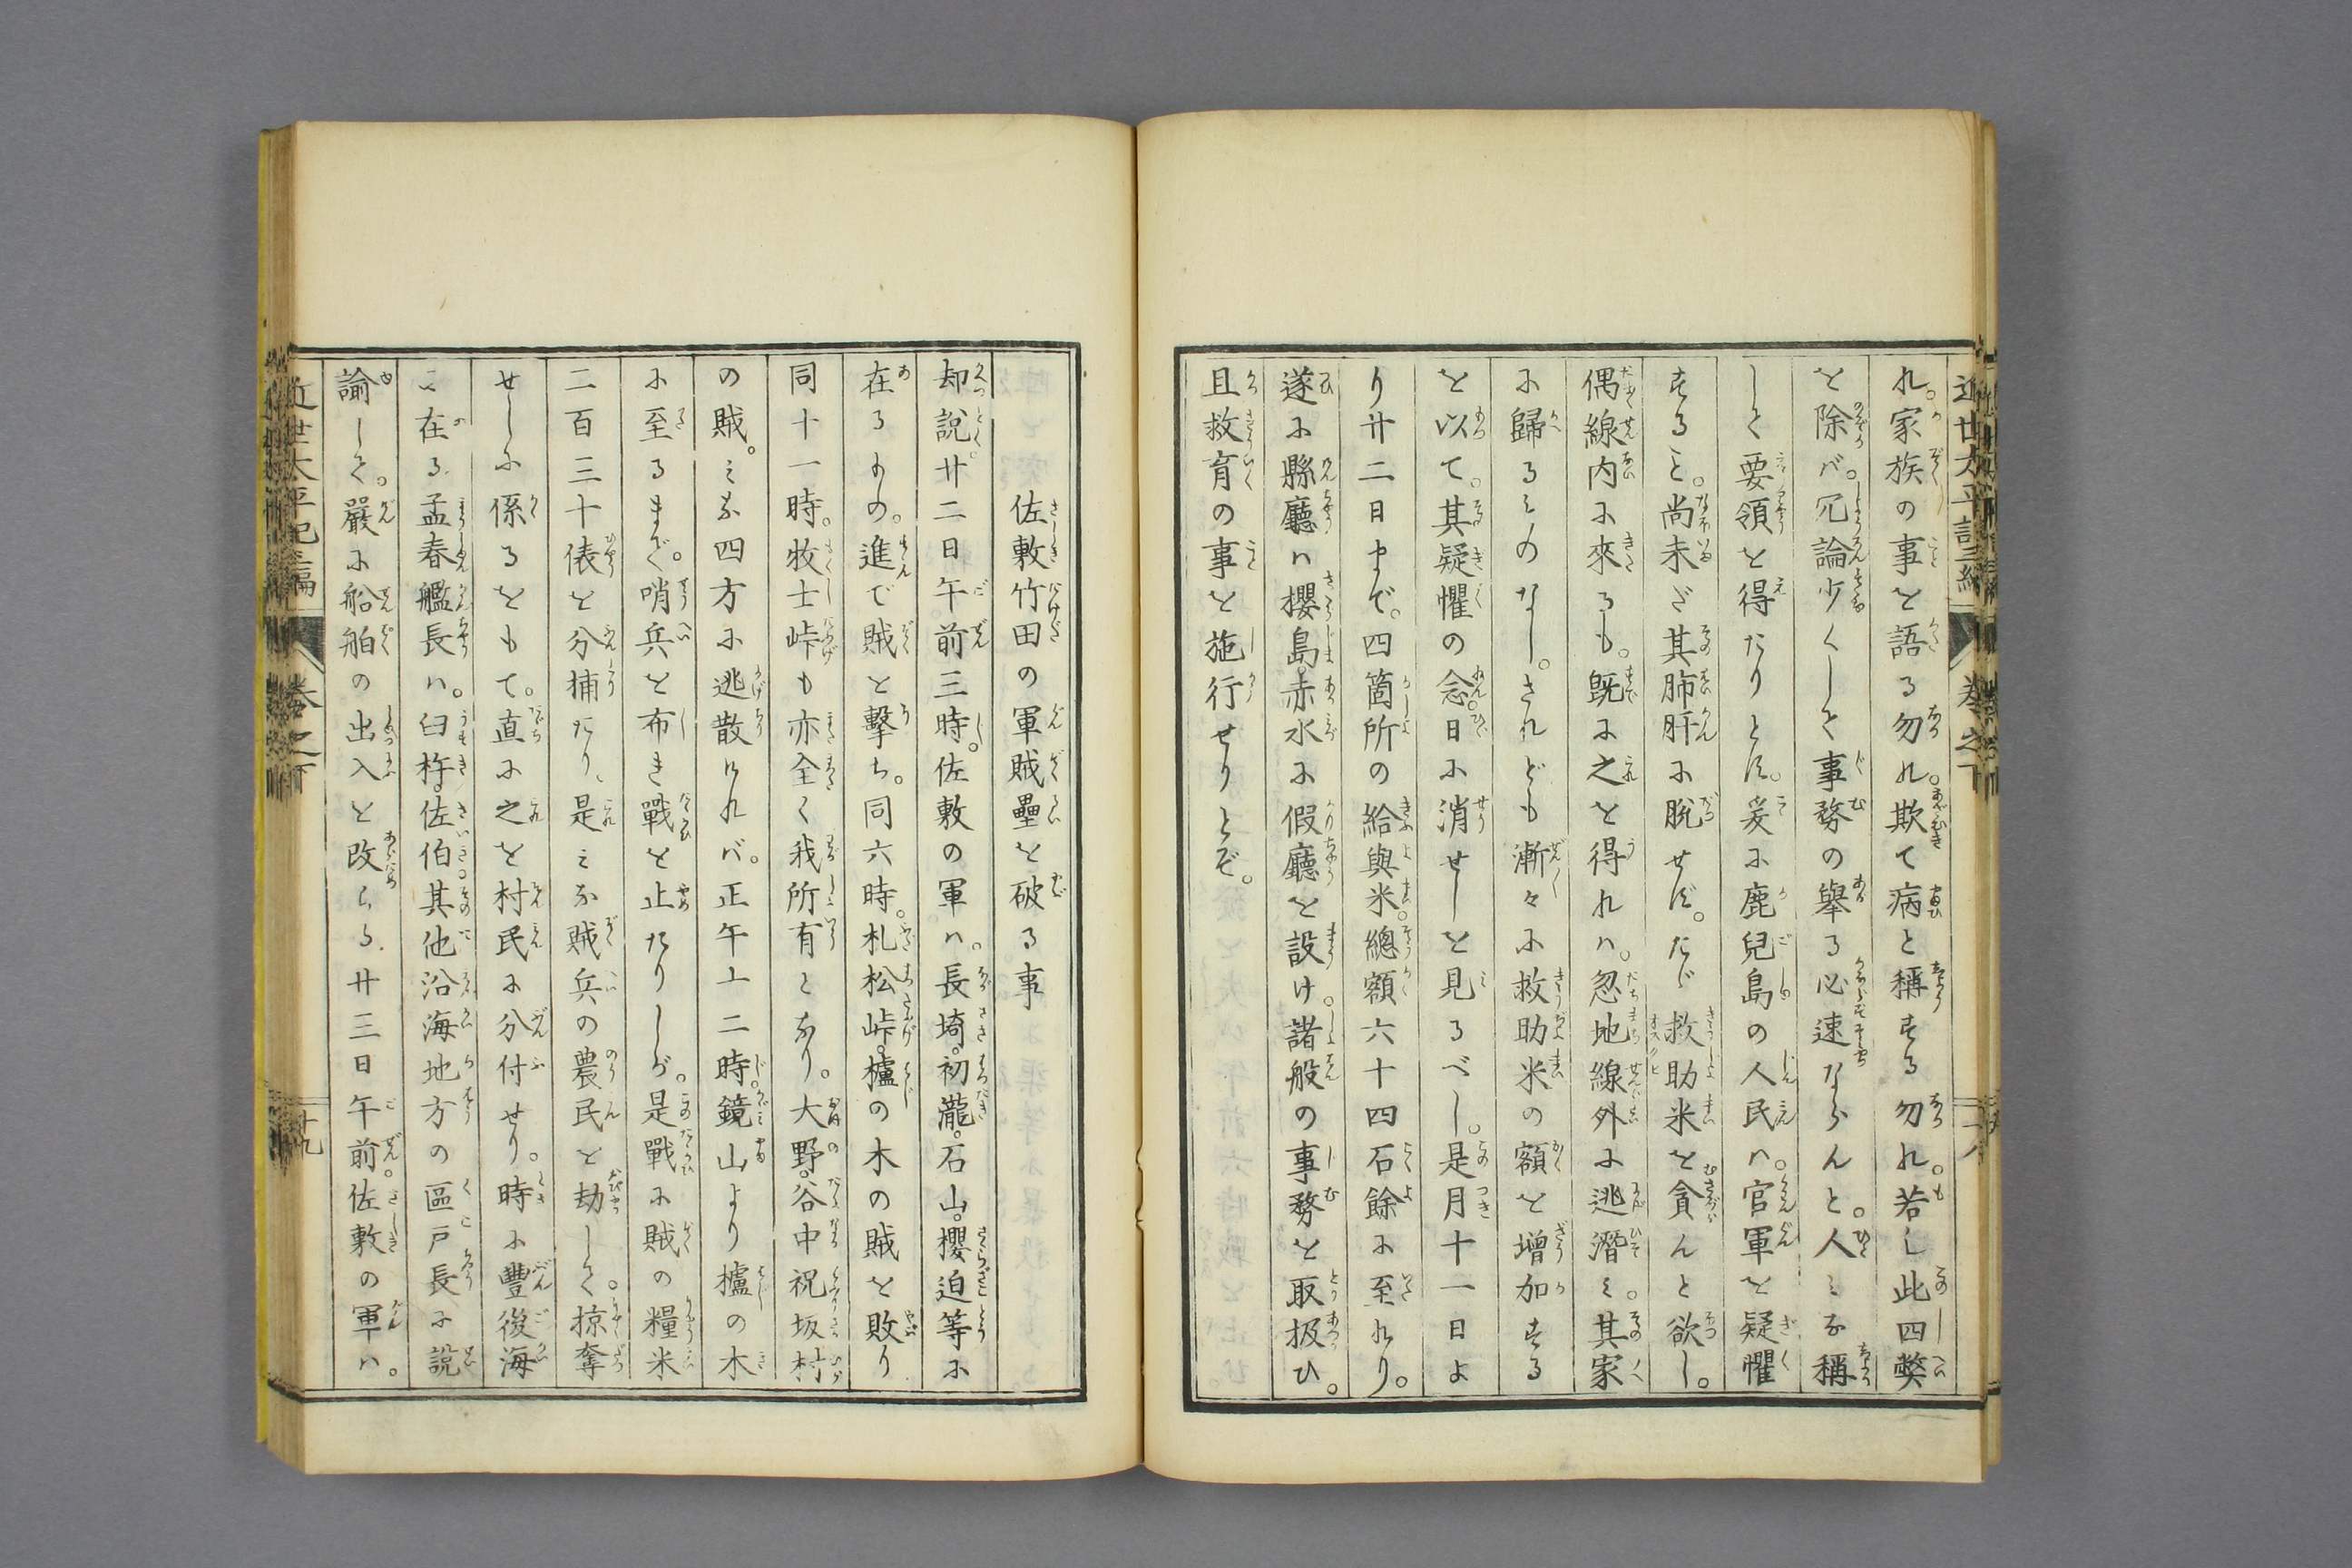 近世太平記三編 卷之下
れ。家族の事を語る勿れ。欺て病と稱する勿れ。若し此四弊
を除バ。冗論少くして事務の擧る必速ならんと。人みな稱
して要領を得たりとす。爰に鹿兒島の人民ハ。官軍を疑懼
すること。尚未ダ其肺肝に脱せず。たゞ救助米を貪んと欲し。
偶線内に來るも。既に之を得れハ。忽地線外に逃潛み。其家
に歸るものなし。されども漸々に救助米の額を增加する
を以て。其疑懼の念。日に消せしを見るべし。是月十一日よ
り廿二日まで。四箇所の給與米。總額六十四石餘に至れり。
遂に縣廳ハ櫻島。赤水に假廳を設け。諸般の事務を取扱ひ。
且救育の事を施行せりとぞ。
佐敷竹田の軍賊壘を破る事
却說。廿二日午前三時。佐敷の軍ハ。長埼。初瀧。石山。櫻迫等に
在るもの。進で賊を擊ち。同六時。札松峠。櫨の木の賊を敗り
同十一時。牧士峠も亦全く我所有となり。大野。谷中祝坂村
の賊。みな四方に逃散けれバ。正午十二時。鏡山より櫨の木
に至るまで。哨兵を布き戰を止たりしが。是戰に賊の糧米
二百三十俵を分捕たり、是みな賊兵の農民を劫して。掠奪
せしに係るをもて。直に之を村民に分付せり。時に豐後海
に在る孟春艦長ハ。臼杵。佐伯其他沿海地方の區戸長に說
諭して。嚴に船舶の出入を改らる。廿三日午前。佐敷の軍ハ。
近世太平記三編 卷之下 十九